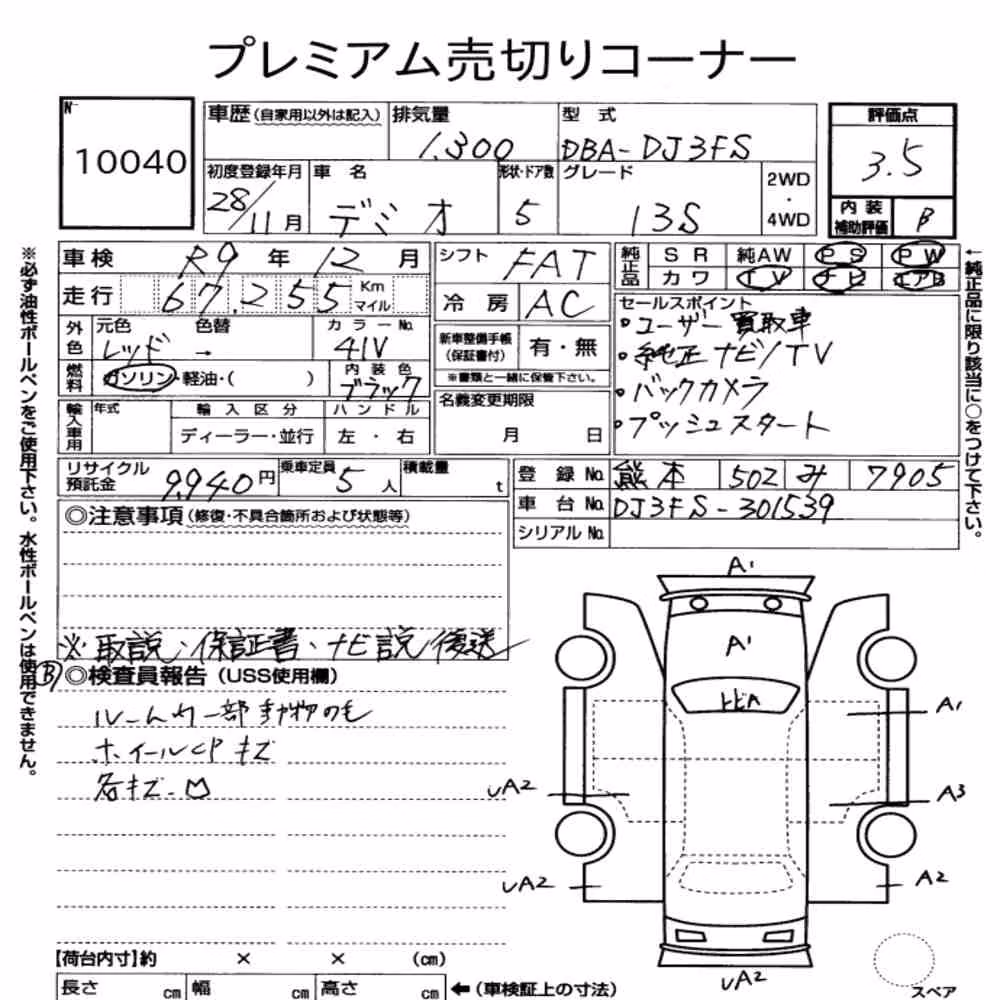 プレミアム売切りコーナー
No
10040
車歴(自家用以外は記入)
排気量
1.300
型 式
DBA-DJ3FS
評価点
3.5
初度登録年月
28/11月
車 名
デミオ
形状・ドア数
5
グレード
13S
2WD
・
4WD
内 装
補助評価
B
車検 R9 年 12 月
シフト FAT
純正品
S R 純AW P S P W
カ ワ T V ナ ビ エアB
←純正品に限り該当に○をつけて下さい。
走行 67,255 Km
マイル
冷 房 AC
セールスポイント
・ユーザー買取車
・純正ナビ/TV
・バックカメラ
・プッシュスタート
外色
元色 色替
レッド →
カラーNo.
41V
新車整備手帳
(保証書付)
有・無
※書類と一緒に保管下さい。
燃料
ガソリン・軽油・( )
内 装 色
ブラック
名義変更期限
月 日
輸入車用
年式
輸 入 区 分
ディーラー・並行
ハ ン ド ル
左 ・ 右
リサイクル
預託金
9,940円
乗車定員
5 人
積載量
t
登 録 No. 熊本 502 み 7905
車 台 No. DJ3FS-301539
シリアル No.
※必ず油性ボールペンをご使用下さい。水性ボールペンは使用できません。
◎注意事項(修復・不具合箇所および状態等)
※取説、保証書、ナビ説/後送
B
◎検査員報告(USS使用欄)
ルーム内一部動物の毛
ホイールCPキズ
各キズ
A1
A1
トビA
A1
UA2
A3
UA2
A2
UA2
スペア
【荷台内寸】約 × × (cm)
長さ cm 幅 cm 高さ cm
←(車検証上の寸法)